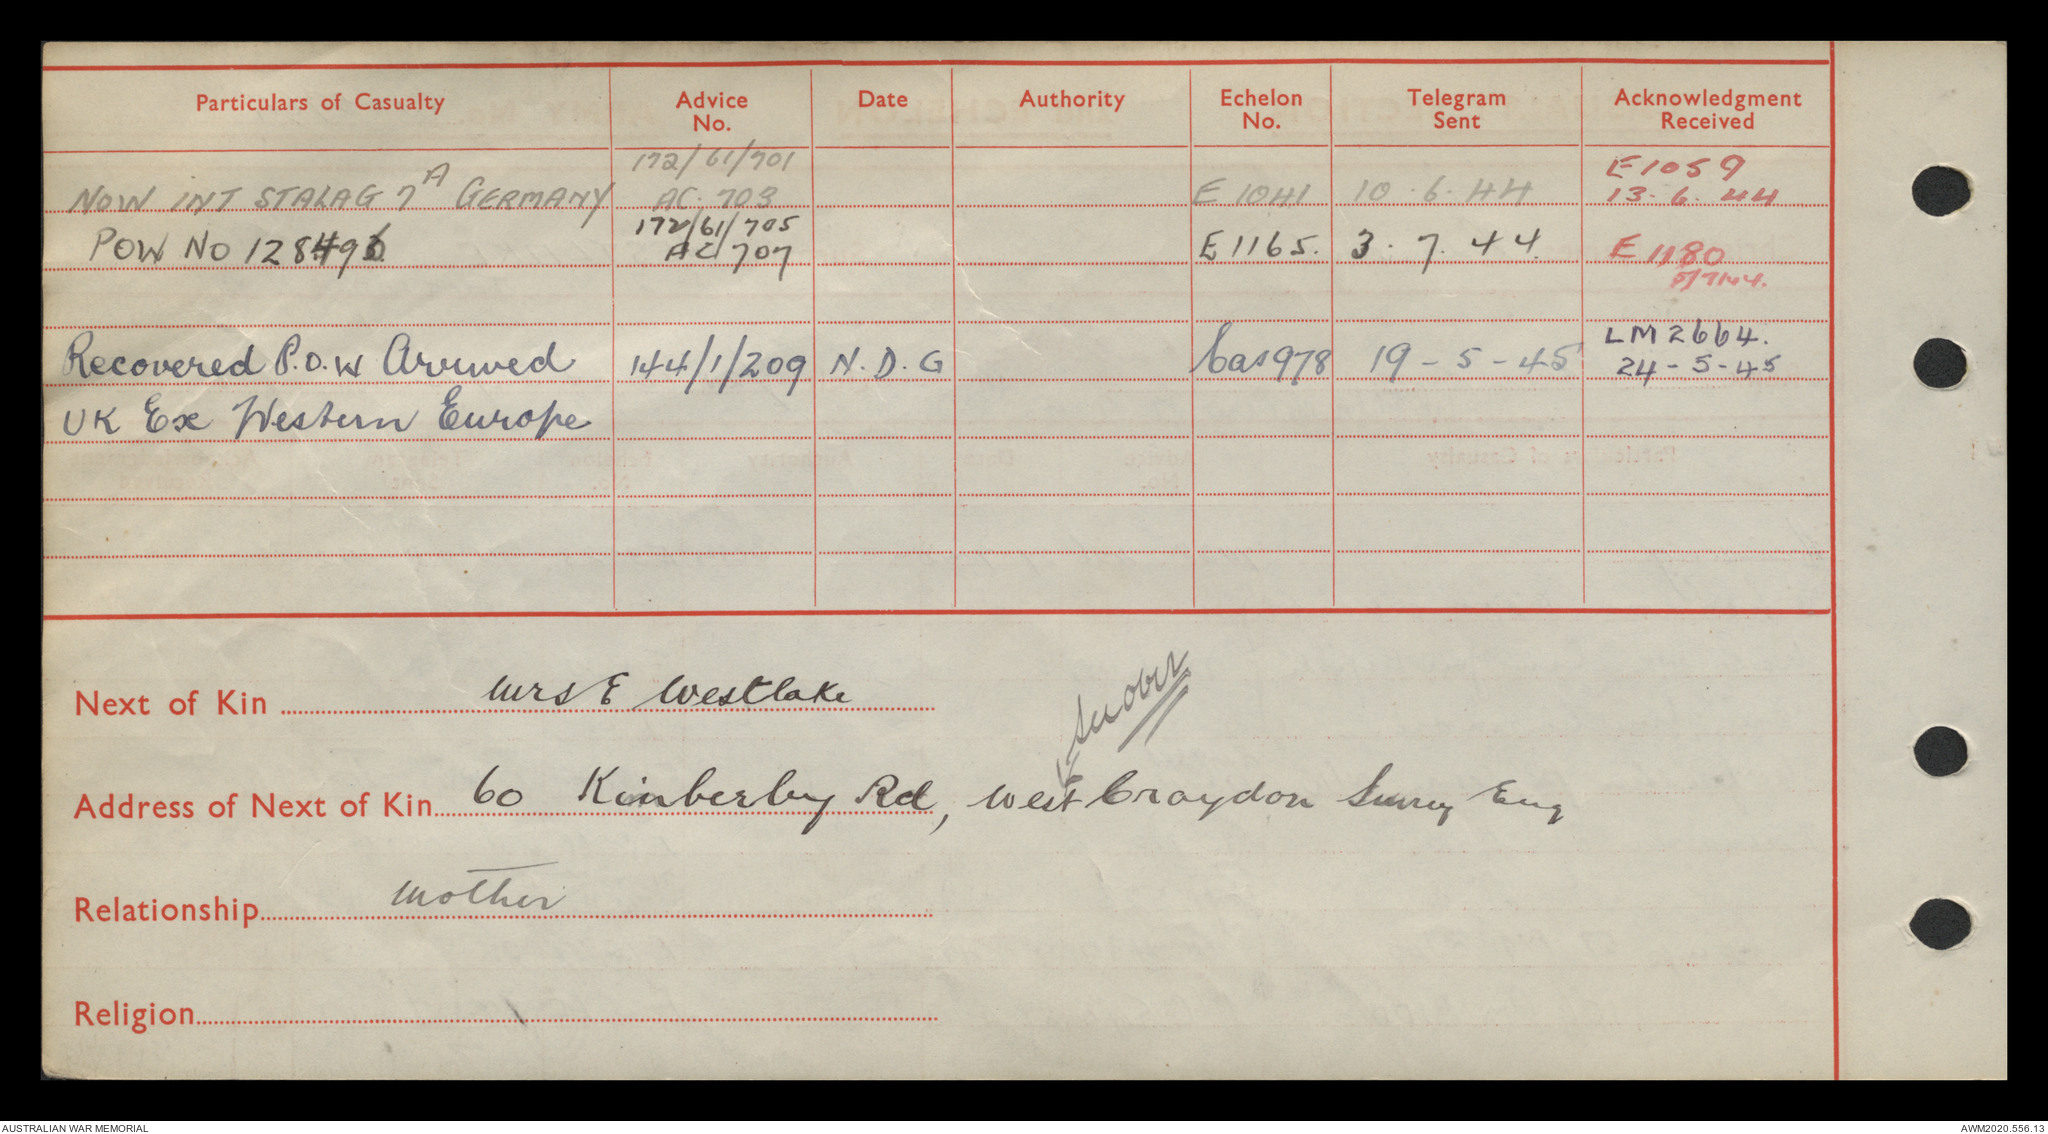 Particulars of Casualty Advice No. Date Authority Echelon No. Telegram Sent Acknowledgment Received
172/61/701 E1059
NOW INT STALAG 7A GERMANY AC. 703 E 1041 10.6.44 13.6.44
172/61/705
POW NO 128496 AC 707 E1165. 3.7.44. E 1180
5/7/44.
LM2664.
Recovered P.O.W Arrived 144/1/209 N.D.G Cas978 19-5-45 24-5-45
UK Ex Western Europe
Next of Kin Mrs E Westlake
Address of Next of Kin 60 Kimberley Rd, West Croydon Surrey Eng
Relationship Mother
Religion
AUSTRALIAN WAR MEMORIAL AWM2020.556.13